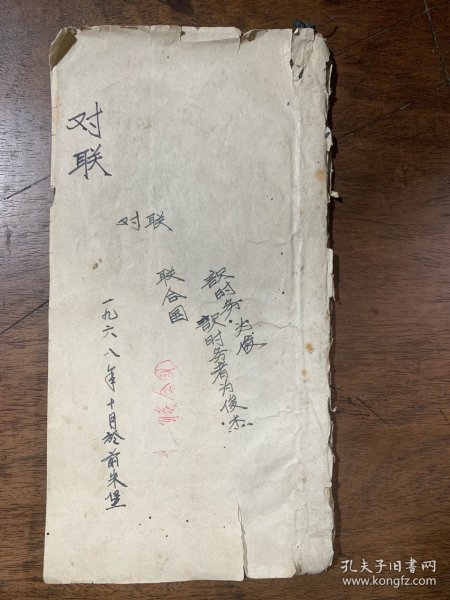 对联
对联
联合国
识时务
识时务者为俊杰
一九六八年十月於前朱堡
孔夫子旧书网
www.kongfz.com